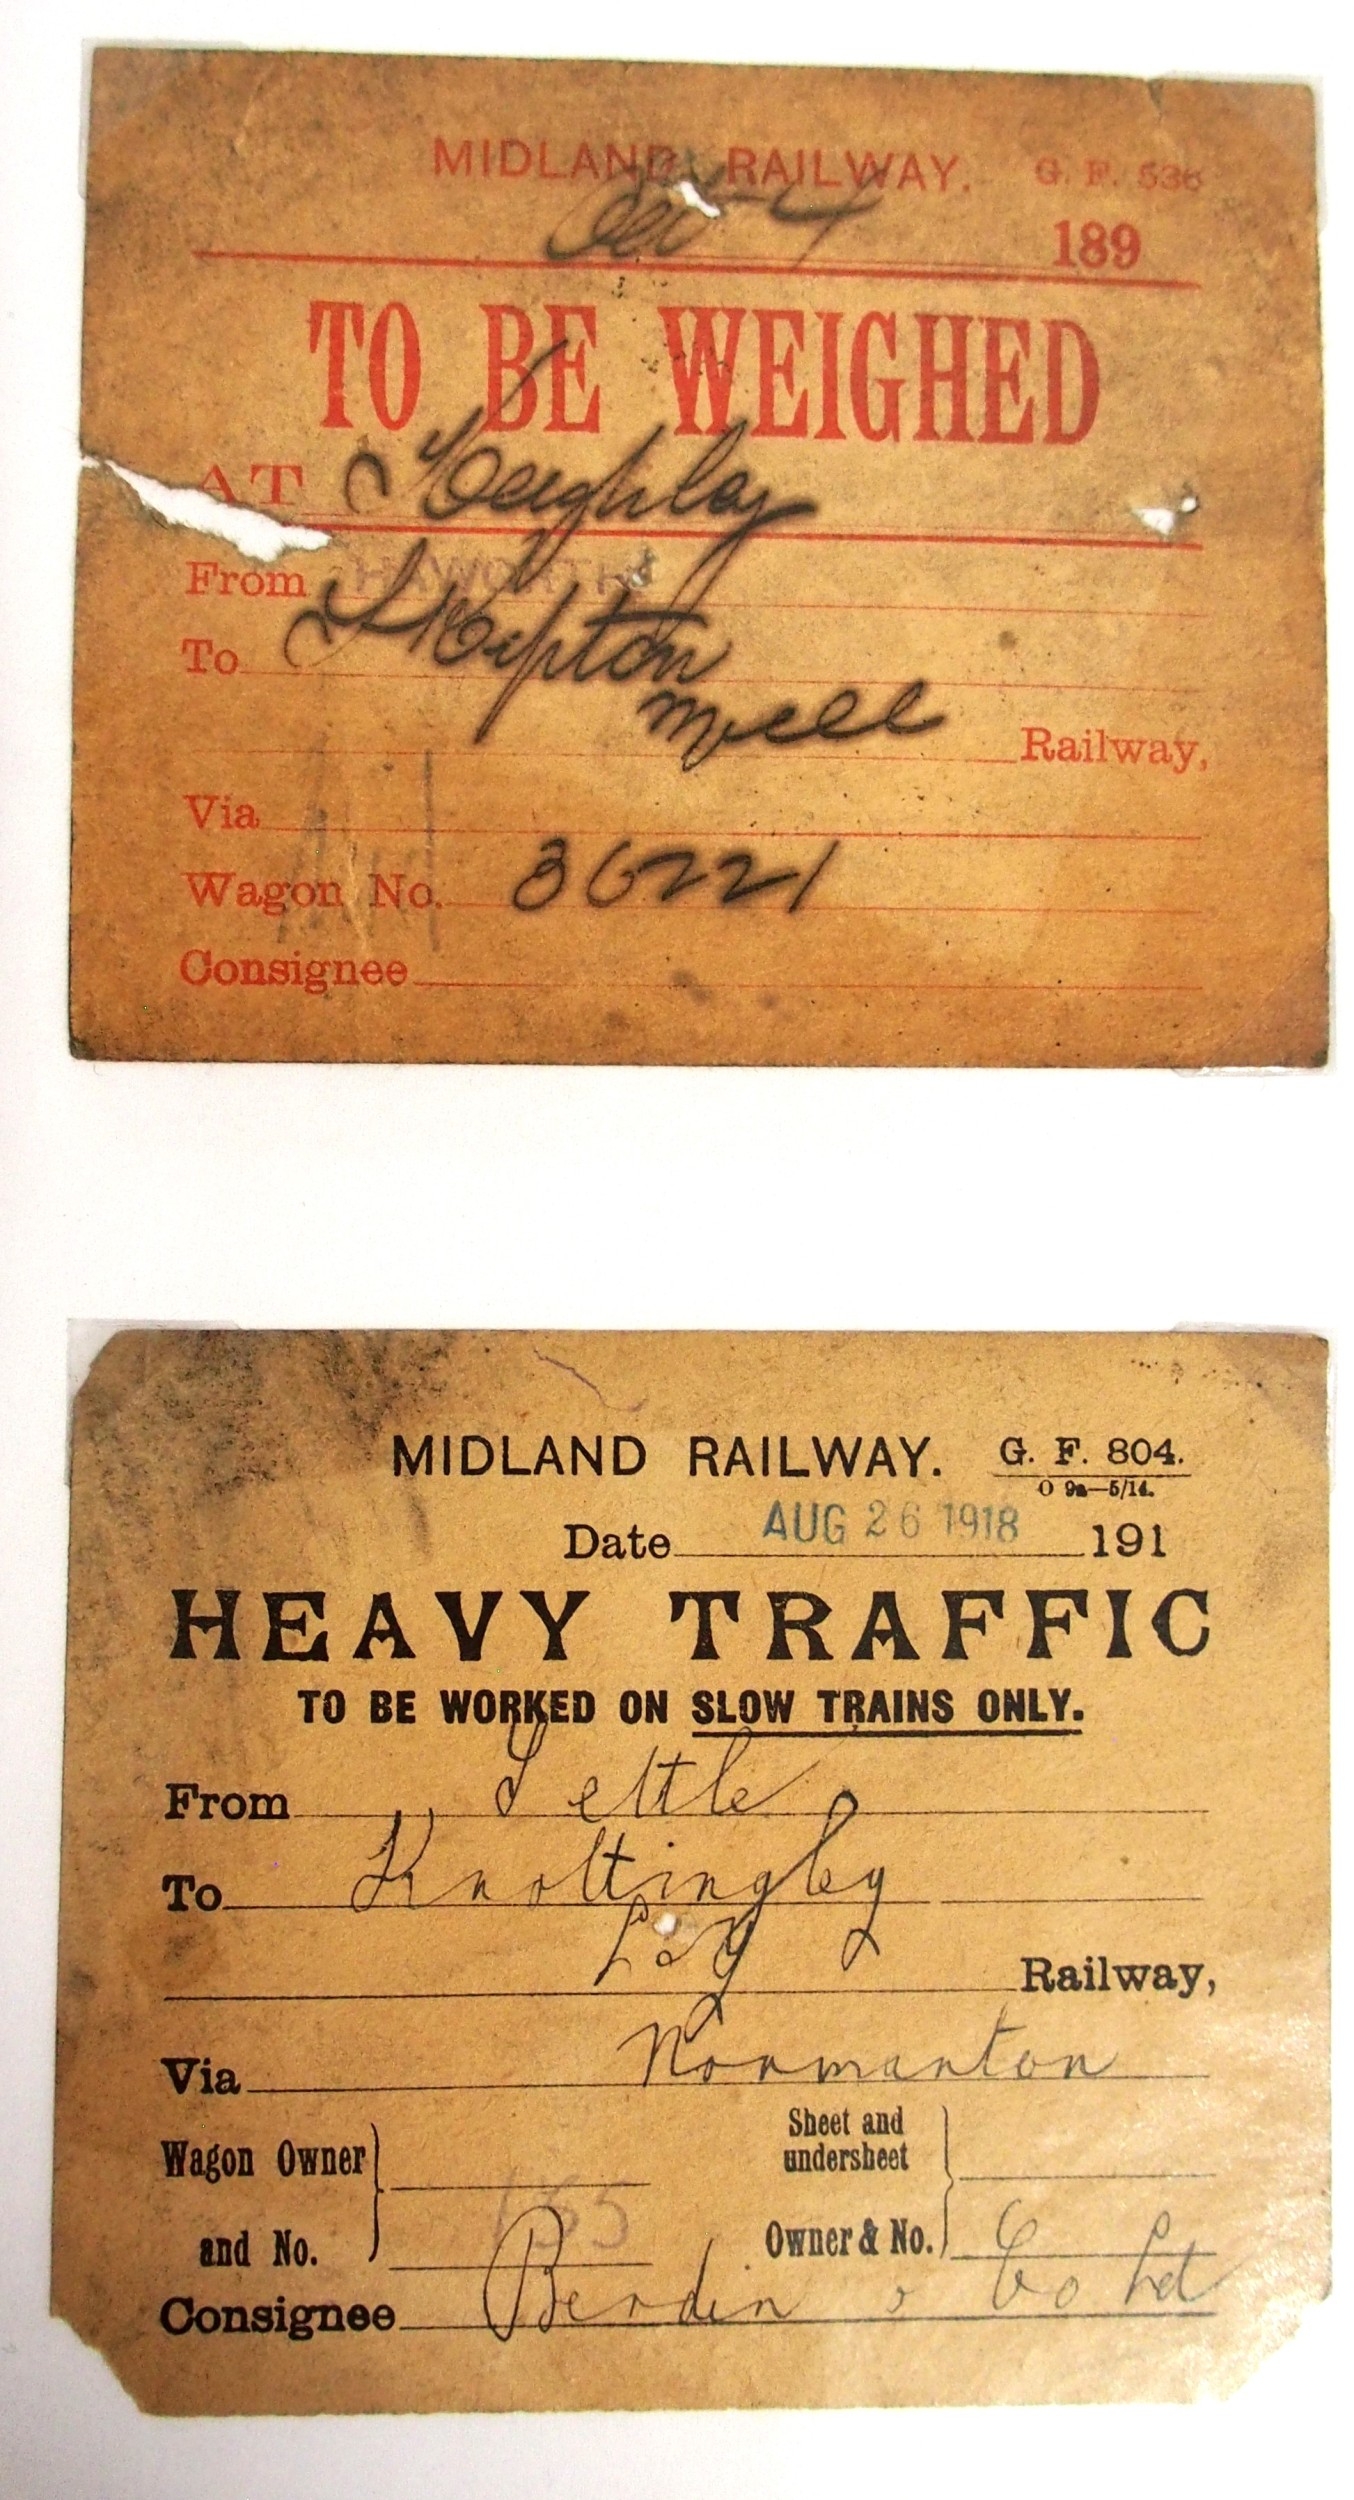 MIDLAND RAILWAY. G. F. 536
189
TO BE WEIGHED
AT Keighley
From HAWORTH
To Skipton
Railway,
Via
Wagon No. 36221
Consignee
MIDLAND RAILWAY. G. F. 804.
O 9a—5/14.
Date AUG 26 1918 191
HEAVY TRAFFIC
TO BE WORKED ON SLOW TRAINS ONLY.
From Settle
To Knottingley
L & Y Railway,
Via Normanton
Wagon Owner
and No.
Sheet and
undersheet
Owner & No.
Consignee Berdin & Co Ltd